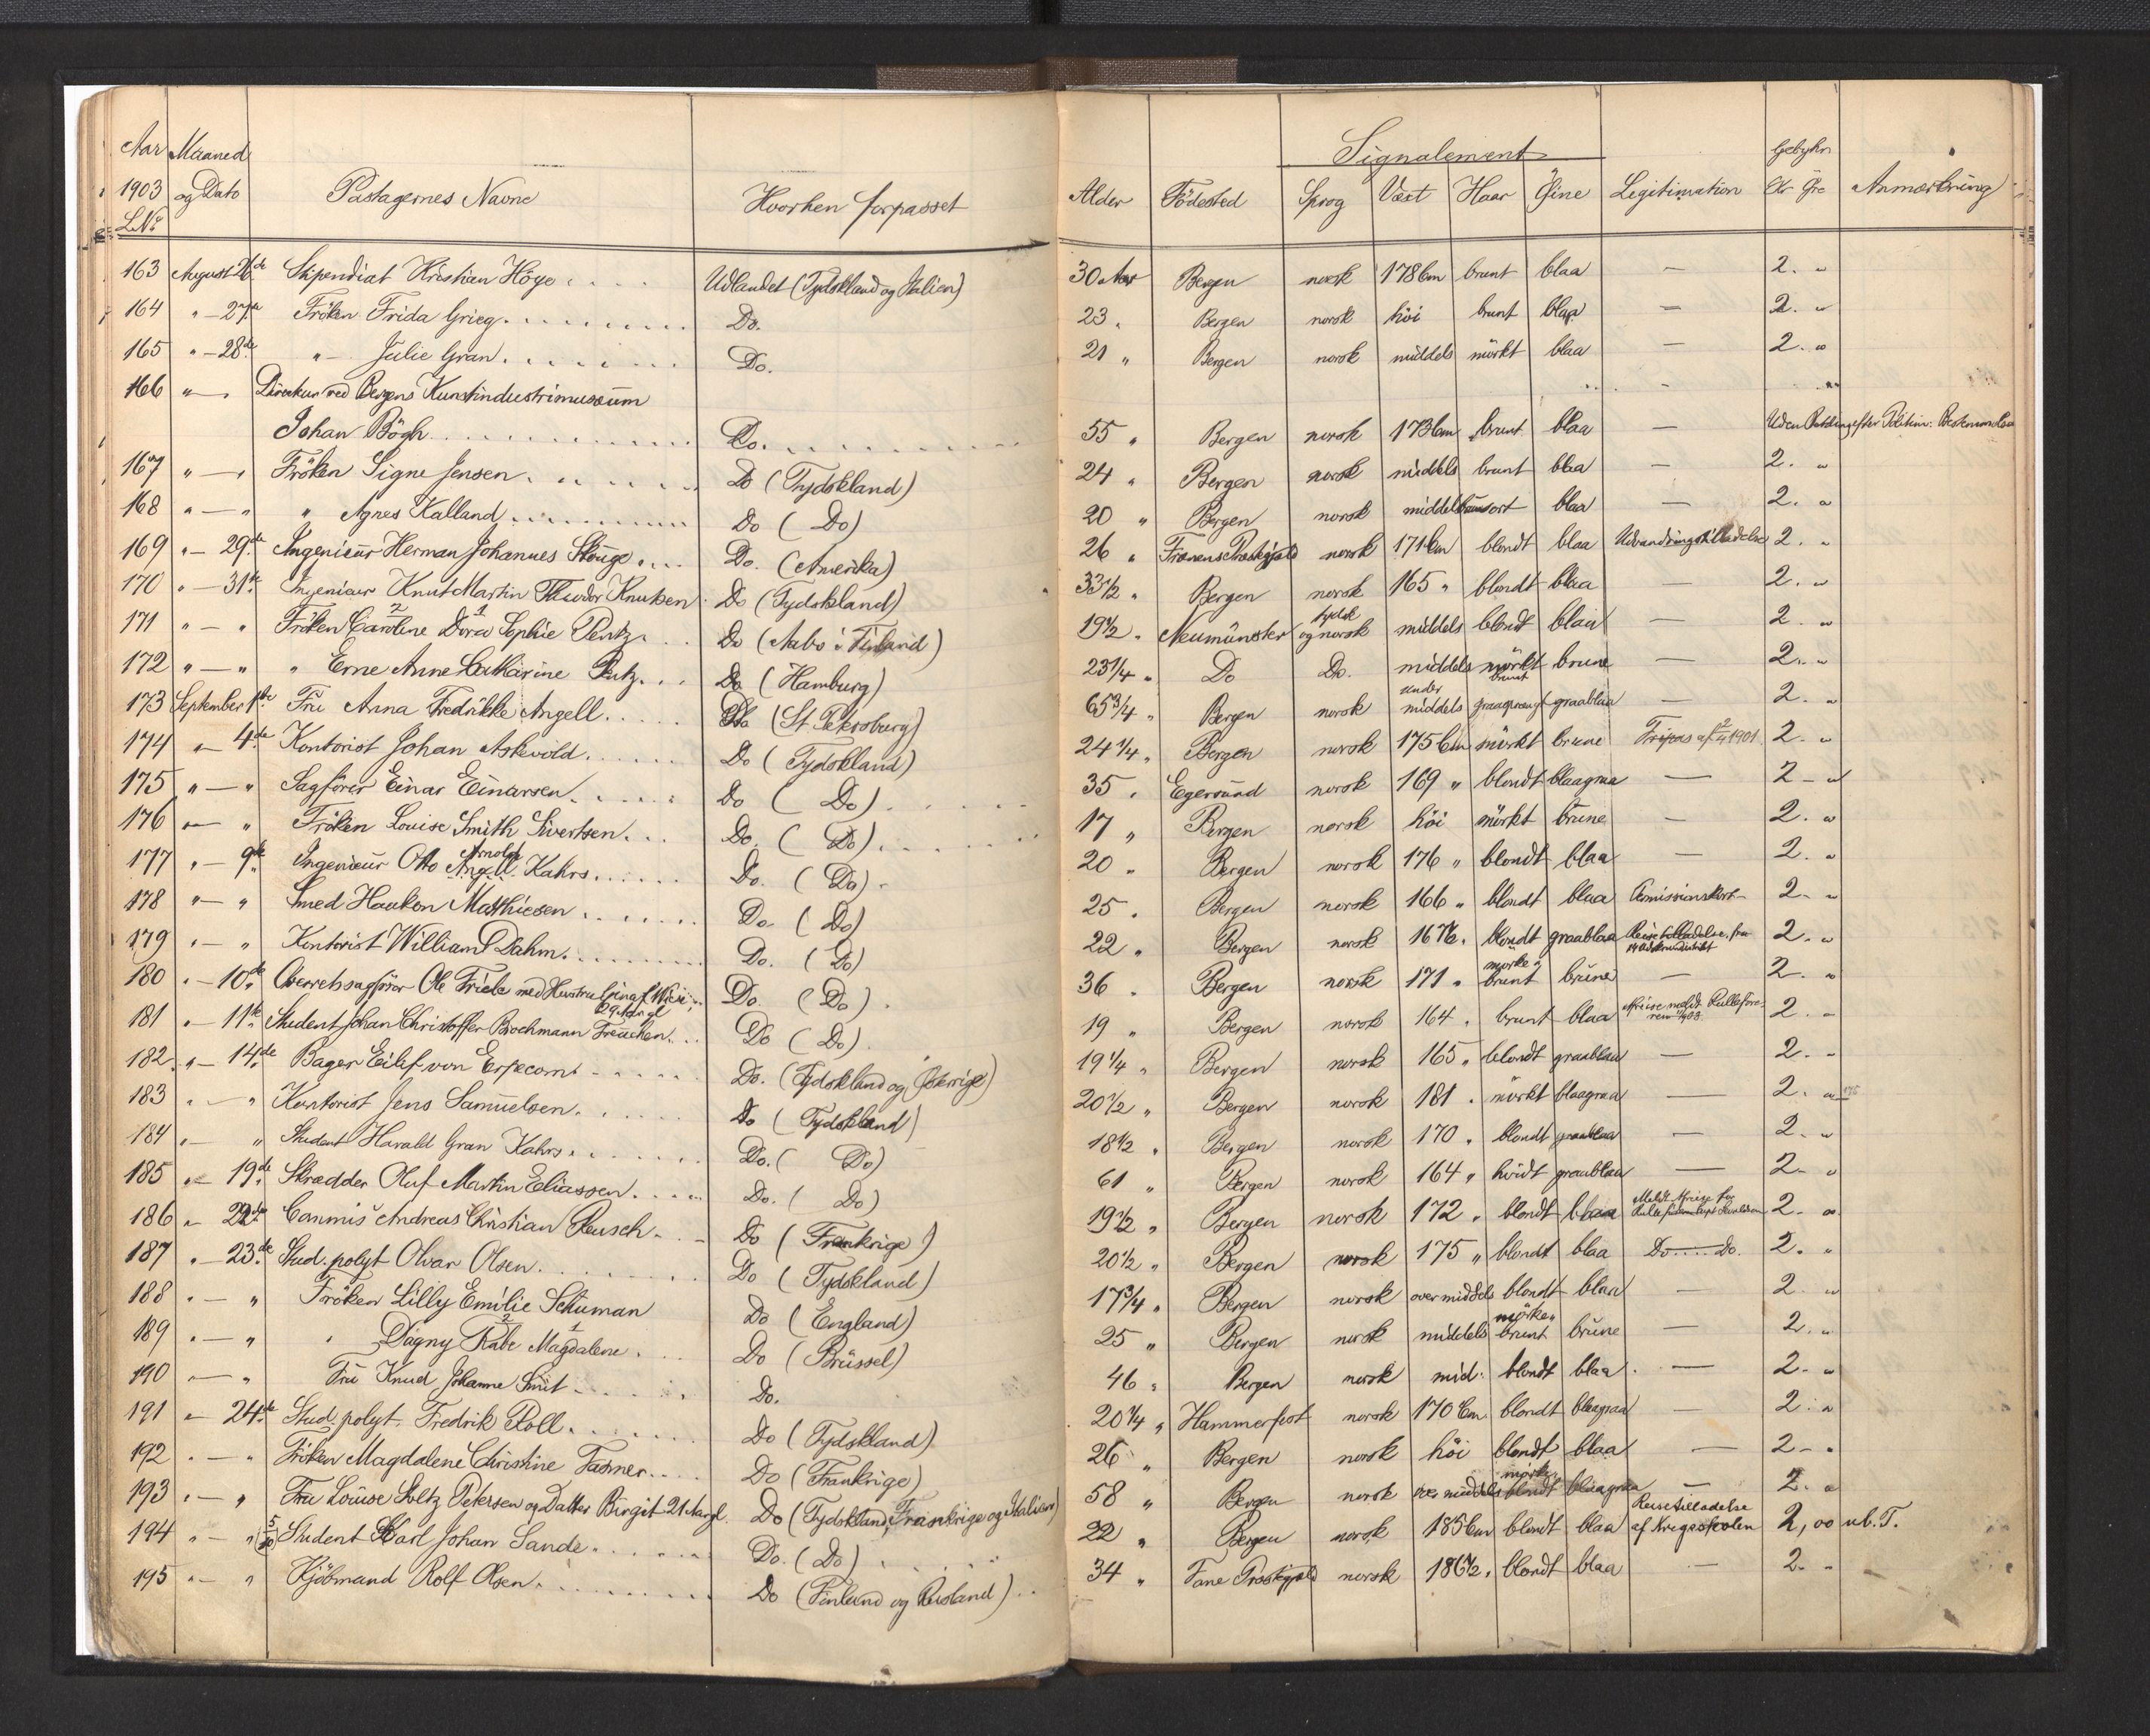 Aar Maaned
1903 og Dato Passagernes Navne Hvorhen forpasset
LNo
Signalement
Alder Födested Sprog Væxt Haar Öine Legitimation Gebyhr Kr Öre Anmærkning
163 August 26de Stipendiat Kristian Höye . . . . Udlandet (Tydskland og Italien) 30 Aar Bergen norsk 178 Cm brunt blaa — 2. "
164 " — 27de Fröken Frida Grieg . . . . Do. 23 " Bergen norsk höi brunt blaa — 2. "
165 " — 28de " Julie Gran . . . . Do. 21 " Bergen norsk middels mörkt blaa — 2. "
166 " — " Direktør ved Bergens Kunstindustrimuseum
Johan Bögh . . . . Do. . . . . 55 " Bergen norsk 173 Cm brunt blaa — Uden efter
167 " — " Fröken Signe Jensen . . . . Do (Tydskland) 24 " Bergen norsk middels brunt blaa — 2. "
168 " — " " Agnes Kalland . . . . Do ( Do) 20 " Bergen norsk middels blaa — 2. "
169 " — 29de Ingeniør Herman Johannes Skouge . . . Do. (Amerika) 26 " norsk 171 Cm blondt blaa Udvandringstilladelse 2. "
170 " — 31te Ingeniør Knut Martin Theodor Knutsen Do (Tydskland) 33 1/2 " Bergen norsk 165 " blondt blaa — 2. "
171 " — " Fröken Caroline 2 Dora 1 Sophie Pentz . . Do (Aabo i Finland) 19 1/2 " Neumünster tydsk og norsk middels blondt blaa — 2. "
172 " — " " Erne Anne Catharine Pentz . . . Do (Hamburg) 23 1/4 " Do Do. middels mörkt brunt brune — 2. "
173 September 1ste Fru Anna Fredrikke Angell . . . . Do (St. Petersburg) 65 3/4 " Bergen norsk under middels graasprængt graablaa — 2. "
174 " — 4de Kontorist Johan Askevold . . . . Do (Tydskland) 24 1/4 " Bergen norsk 175 Cm mörkt brune Fripas af 1901 2. "
175 " — " Sagförer Einar Einarsen . . . . Do ( Do) . . . 35 " Egersund norsk 169 " blondt blaagraa — 2 — "
176 " — " Fröken Louise Smith Sivertsen . . . Do. ( Do) . . . 17 " Bergen norsk höi mörkt brune — 2. "
177 " — 9de Ingeniør Otto Angell Arnoldt Kahrs . . . . Do. ( Do) . 20 " Bergen norsk 176 " blondt blaa — 2. "
178 " — " Smed Haakon Matthiesen . . . . Do. ( Do) 25 " Bergen norsk 166 " blondt blaa 2. "
179 " — " Kontorist William P Dahm . . . . Do. ( Do) 22 " Bergen norsk blondt graablaa Reisetilladelse fra 2. "
180 " — 10de Overretssagförer Ole Friele med Hustru Do. ( Do) . 36 " Bergen norsk 171 " mörke brunt brune — 2. "
181 " — 11te Student Johan Christoffer Brochmann . . Do ( Do) . 19 " Bergen norsk 164 " brunt blaa 2. "
182 " — 14de Bager Eilif von Erpecom . . . . Do. (Tydskland og Østerrige) 19 1/4 " Bergen norsk 165 " blondt graablaa — 2. "
183 " — " Kontorist Jens Samuelsen . . . . Do (Tydskland) 20 1/2 " Bergen norsk 181 " mörkt blaagraa — 2. "
184 " — " Student Harald Gran Kahrs . . . . Do. ( Do) 18 1/2 " Bergen norsk 170 " blondt graablaa — 2. "
185 " — 19de Skrædder Oluf Martin Eliassen . . . . Do. ( Do) 61 " Bergen norsk 164 " hvidt graablaa — 2. "
186 " — 22de Commis Andreas Christian Reusch . . . Do (Frankrige) 19 1/2 " Bergen norsk 172 " blondt blaa Meldt 2. "
187 " — 23de Stud. polyt Olvar Olsen . . . . Do (Tydskland) 20 1/2 " Bergen norsk 175 " blondt blaa Do . . . . Do. 2. "
188 " — " Fröken Lilly Emilie Schuman Do (England) 17 3/4 " Bergen norsk over middels blondt blaa — 2. "
189 " — " " Dagny Rabe 2 Magdalene 1 . . . Do (Brüssel) 25 " Bergen norsk middels mörke brunt brune — 2. "
190 " — " Fru Knud Johanne Smit . . . . Do. 46 " Bergen norsk mid. blondt blaa — 2. "
191 " — 24de Stud. polyt. Fredrik Roll . . . . Do (Tydskland) 20 1/4 " Hammerfest norsk 170 Cm blondt blaagraa — 2. "
192 " — " Fröken Magdalene Christine Fasmer . . . . Do (Frankrige) 26 " Bergen norsk höi blondt blaa — 2 — "
193 " — " Fru Louise Stoltz Petersen og Datter Birgit 21 Aar gl. Do (Tydskland, Frankrige og Italien) 58 " Bergen norsk over middels mörke blondt blaagraa — 2. "
194 " — " 5/10 Student Carl Johan Sande . . . . Do. (Do) 22 " Bergen norsk 185 Cm blondt blaa Reisetilladelse af Krigsskolen 2,00 ub. T.
195 " — " Kjöbmand Rolf Olsen . . . . Do (Finland og Rusland) . . 34 " Fane Præstegjæld norsk 186 1/2 " blondt blaa — 2. "